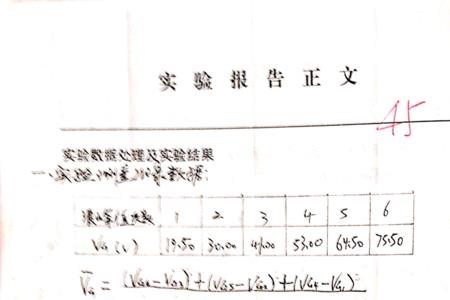 实验报告正文
45
实验数据处理及实验结果
一、实验测量记录数据:
次数 1 2 3 4 5 6
VG(V) 19.50 30.00 41.00 53.00 64.50 75.50
V̄G = (VG6-VG3)+(VG5-VG2)+(VG4-VG1)